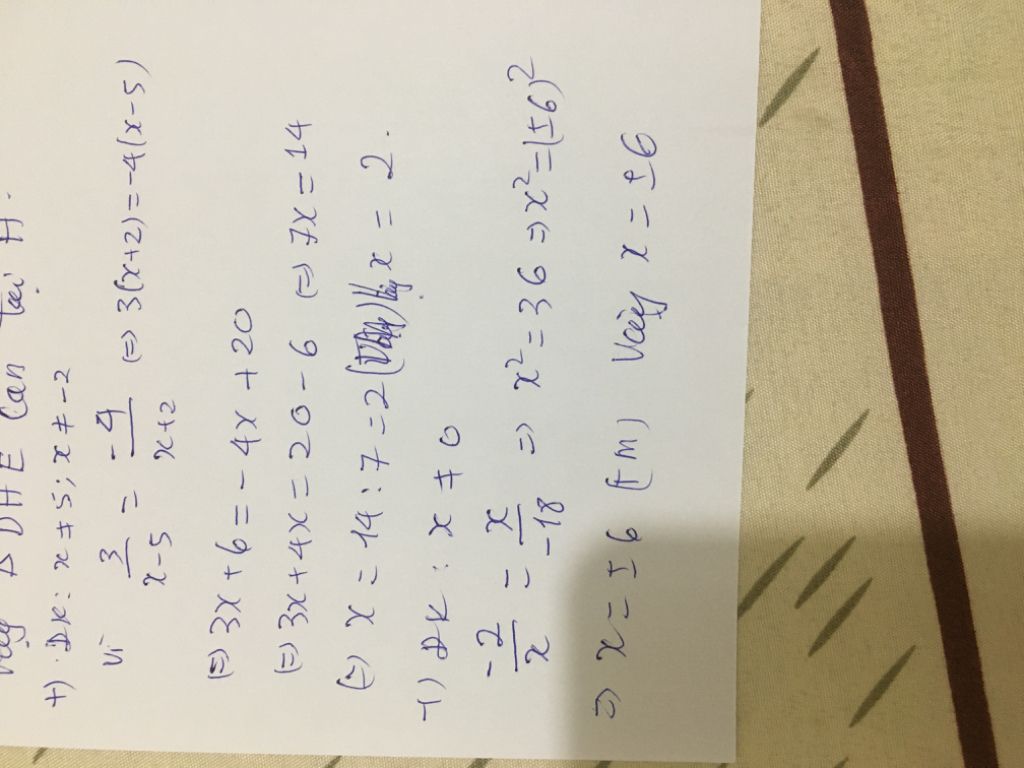 Vậy Δ DHE Cân tại H.
+) ĐK: x ≠ 5; x ≠ -2
Vì 3/(x-5) = -4/(x+2) (=) 3(x+2) = -4(x-5)
(=) 3x + 6 = -4x + 20
(=) 3x + 4x = 20 - 6 (=) 7x = 14
(=) x = 14 : 7 = 2 Vậy x = 2.
+) ĐK: x ≠ 0
-2/x = x/-18 => x² = 36 => x² = (±6)²
=> x = ±6 (TM) Vậy x = ±6